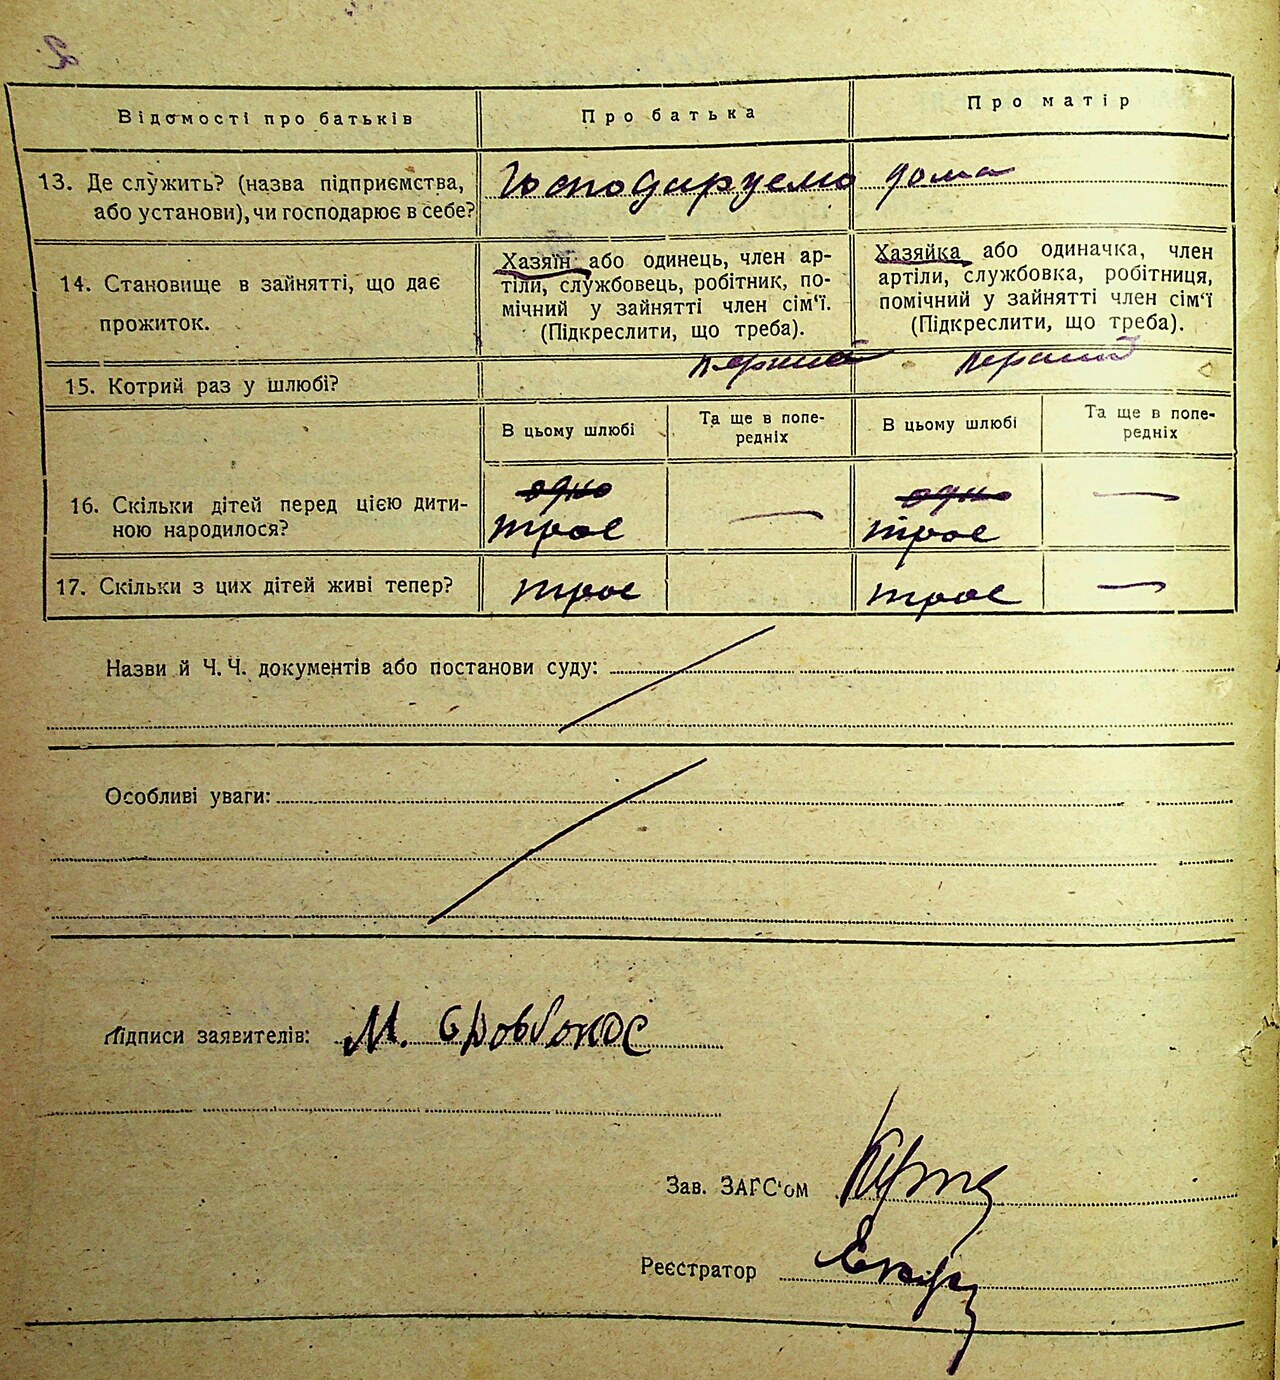 Відомості про батьків Про батька Про матір
13. Де служить? (назва підприємства, Господаруемо дома
або установи), чи господарює в себе?
Хазяїн або одинець, член ар- Хазяйка або одиначка, член
14. Становище в зайнятті, що дає тіли, службовець, робітник, по- артіли, службовка, робітниця,
прожиток. мічний у зайнятті член сім'ї. помічний у зайнятті член сім'ї
(Підкреслити, що треба). (Підкреслити, що треба).
15. Котрий раз у шлюбі? перший перший
В цьому шлюбі Та ще в попе- В цьому шлюбі Та ще в попе-
редніх редніх
одно одно —
16. Скільки дітей перед цією дити- троє — троє
ною народилося?
17. Скільки з цих дітей живі тепер? троє троє —
Назви й Ч. Ч. документів або постанови суду:
Особливі уваги:
Підписи заявителів: М.
Зав. ЗАГС'ом
Реєстратор